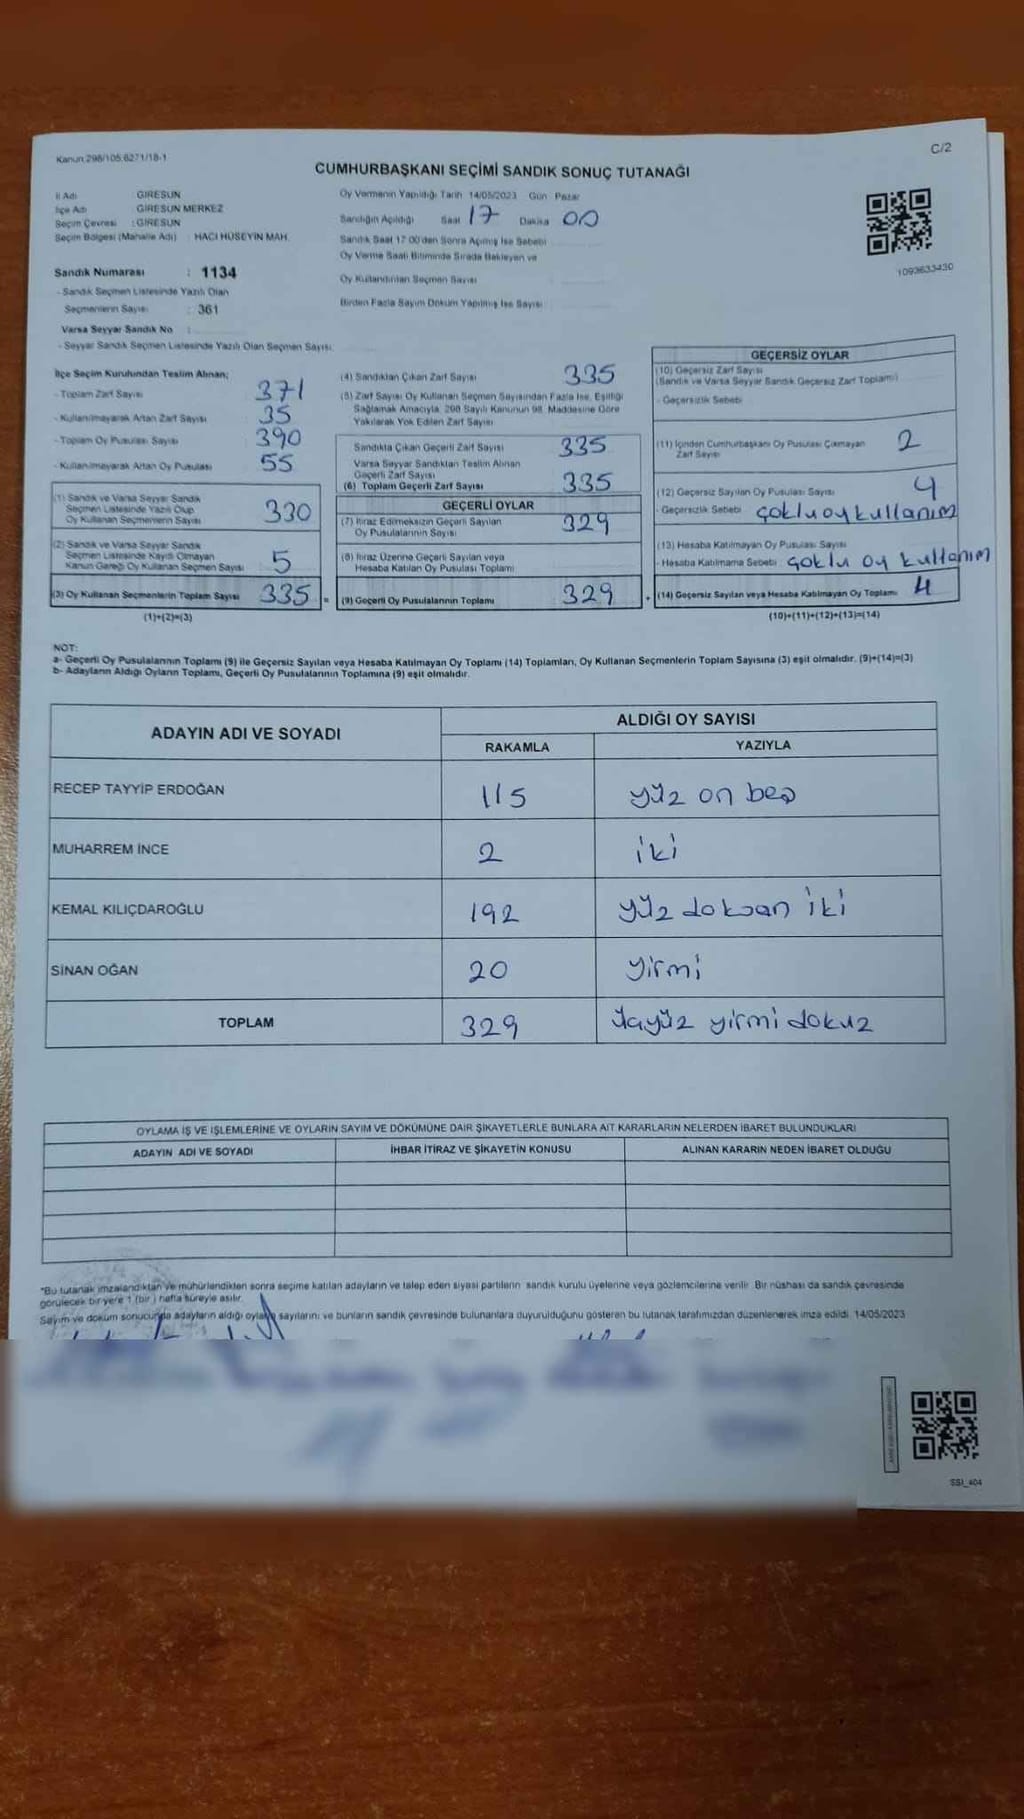 Kanun:298/105;6271/18-1
C/2
CUMHURBAŞKANI SEÇİMİ SANDIK SONUÇ TUTANAĞI
İl Adı GİRESUN
İlçe Adı GİRESUN MERKEZ
Seçim Çevresi : GİRESUN
Seçim Bölgesi (Mahalle Adı) : HACI HÜSEYİN MAH.
Sandık Numarası : 1134
- Sandık Seçmen Listesinde Yazılı Olan
Seçmenlerin Sayısı : 361
Varsa Seyyar Sandık No :
- Seyyar Sandık Seçmen Listesinde Yazılı Olan Seçmen Sayısı:
Oy Vermenin Yapıldığı Tarih 14/05/2023 Gün Pazar
Sandığın Açıldığı Saat 17 Dakika 00
Sandık Saat 17:00'den Sonra Açılmış İse Sebebi
Oy Verme Saati Bitiminde Sırada Bekleyen ve
Oy Kullandırılan Seçmen Sayısı
Birden Fazla Sayım Döküm Yapılmış İse Sayısı
1093633430
İlçe Seçim Kurulundan Teslim Alınan;
- Toplam Zarf Sayısı 371
- Kullanılmayarak Artan Zarf Sayısı 35
- Toplam Oy Pusulası Sayısı 390
- Kullanılmayarak Artan Oy Pusulası 55
(1) Sandık ve Varsa Seyyar Sandık
Seçmen Listesinde Yazılı Olup
Oy Kullanan Seçmenlerin Sayısı 330
(2) Sandık ve Varsa Seyyar Sandık
Seçmen Listesinde Kayıtlı Olmayan
Kanun Gereği Oy Kullanan Seçmen Sayısı 5
(3) Oy Kullanan Seçmenlerin Toplam Sayısı 335 =
(1)+(2)=(3)
(4) Sandıktan Çıkan Zarf Sayısı 335
(5) Zarf Sayısı Oy Kullanan Seçmen Sayısından Fazla İse, Eşitliği
Sağlamak Amacıyla, 298 Sayılı Kanunun 98. Maddesine Göre
Yakılarak Yok Edilen Zarf Sayısı
Sandıkta Çıkan Geçerli Zarf Sayısı 335
Varsa Seyyar Sandıktan Teslim Alınan
Geçerli Zarf Sayısı
(6) Toplam Geçerli Zarf Sayısı 335
GEÇERLİ OYLAR
(7) İtiraz Edilmeksizin Geçerli Sayılan
Oy Pusulalarının Sayısı 329
(8) İtiraz Üzerine Geçerli Sayılan veya
Hesaba Katılan Oy Pusulası Toplamı
(9) Geçerli Oy Pusulalarının Toplamı 329 +
GEÇERSİZ OYLAR
(10) Geçersiz Zarf Sayısı
(Sandık ve Varsa Seyyar Sandık Geçersiz Zarf Toplamı)
- Geçersizlik Sebebi
(11) İçinden Cumhurbaşkanı Oy Pusulası Çıkmayan
Zarf Sayısı 2
(12) Geçersiz Sayılan Oy Pusulası Sayısı 4
- Geçersizlik Sebebi çoklu oy kullanım
(13) Hesaba Katılmayan Oy Pusulası Sayısı
- Hesaba Katılmama Sebebi çoklu oy kullanım
(14) Geçersiz Sayılan veya Hesaba Katılmayan Oy Toplamı 4
(10)+(11)+(12)+(13)=(14)
NOT:
a- Geçerli Oy Pusulalarının Toplamı (9) ile Geçersiz Sayılan veya Hesaba Katılmayan Oy Toplamı (14) Toplamları, Oy Kullanan Seçmenlerin Toplam Sayısına (3) eşit olmalıdır. (9)+(14)=(3)
b- Adayların Aldığı Oyların Toplamı, Geçerli Oy Pusulalarının Toplamına (9) eşit olmalıdır.
ADAYIN ADI VE SOYADI
ALDIĞI OY SAYISI
RAKAMLA YAZIYLA
RECEP TAYYİP ERDOĞAN 115 yüz on beş
MUHARREM İNCE 2 iki
KEMAL KILIÇDAROĞLU 192 yüz doksan iki
SİNAN OĞAN 20 yirmi
TOPLAM 329 üçyüz yirmi dokuz
OYLAMA İŞ VE İŞLEMLERİNE VE OYLARIN SAYIM VE DÖKÜMÜNE DAİR ŞİKAYETLERLE BUNLARA AİT KARARLARIN NELERDEN İBARET BULUNDUKLARI
ADAYIN ADI VE SOYADI İHBAR İTİRAZ VE ŞİKAYETİN KONUSU ALINAN KARARIN NEDEN İBARET OLDUĞU
*Bu tutanak imzalandıktan ve mühürlendikten sonra seçime katılan adayların ve talep eden siyasi partilerin sandık kurulu üyelerine veya gözlemcilerine verilir. Bir nüshası da sandık çevresinde
görülecek bir yere 1 (bir) hafta süreyle asılır.
Sayım ve döküm sonucunda adayların aldığı oyların sayılarını ve bunların sandık çevresinde bulunanlara duyurulduğunu gösteren bu tutanak tarafımızdan düzenlenerek imza edildi. 14/05/2023
SSI_404